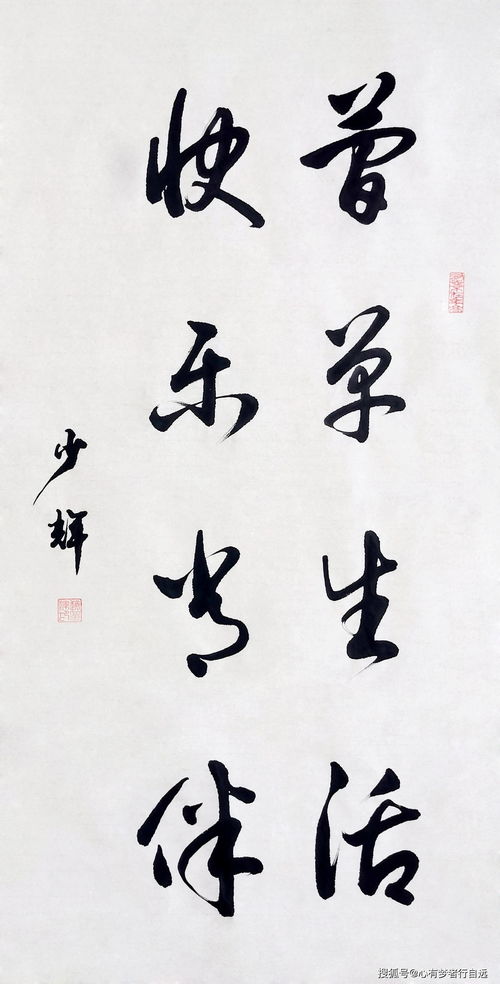 简单生活
快乐常伴
少辉
搜狐号@心有梦者行自远